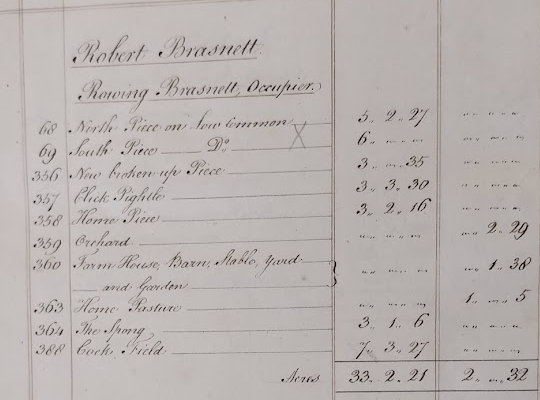 Robert Brasnett
Rowing Brasnett, Occupier.
68 North Piece on Low Common 5.. 2.. 27 .. .. ..
69 South Piece Do X 6.. .. .. .. .. ..
356 New broken up Piece 3.. .. 35 .. .. ..
357 Click Pightle 3.. 3.. 30 .. .. ..
358 Home Piece 3.. 2.. 16 .. .. ..
359 Orchard .. .. .. .. 2.. 29
360 Farm House, Barn, Stable, Yard
and Garden .. .. .. .. 1.. 38
363 Home Pasture .. .. .. 1.. .. 5
364 The Spong 3.. 1.. 6 .. .. ..
388 Cock, Field 7.. 3.. 27 .. .. ..
Acres 33.. 2.. 21 2.. .. 32